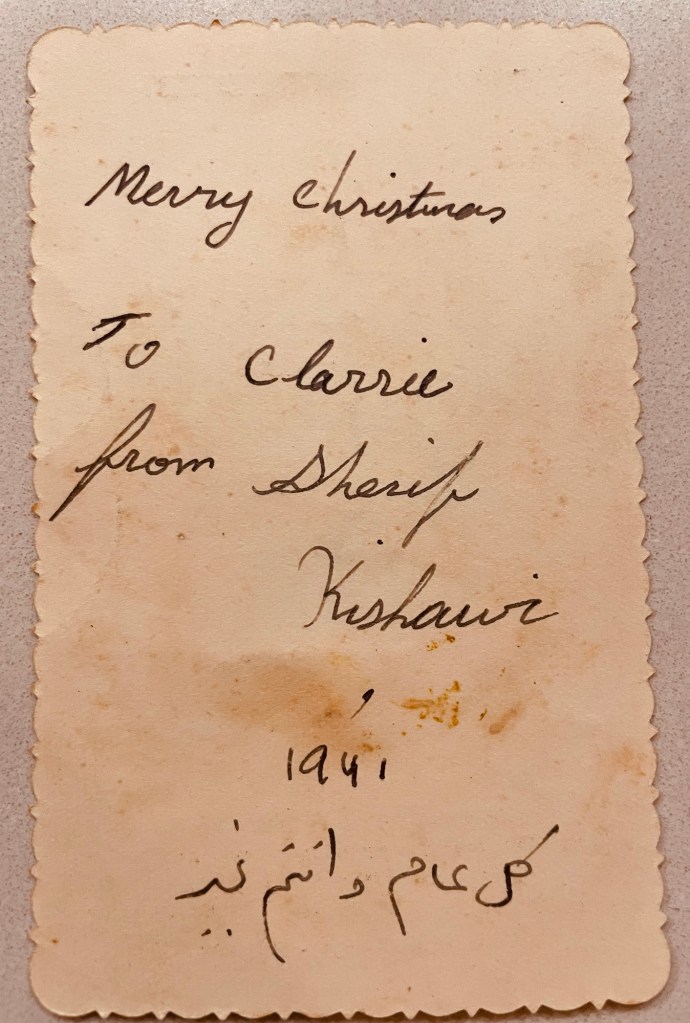 Merry Christmas
To Clarrie
from Sherif
Kishawi
1941
كل عام وانتم بخير